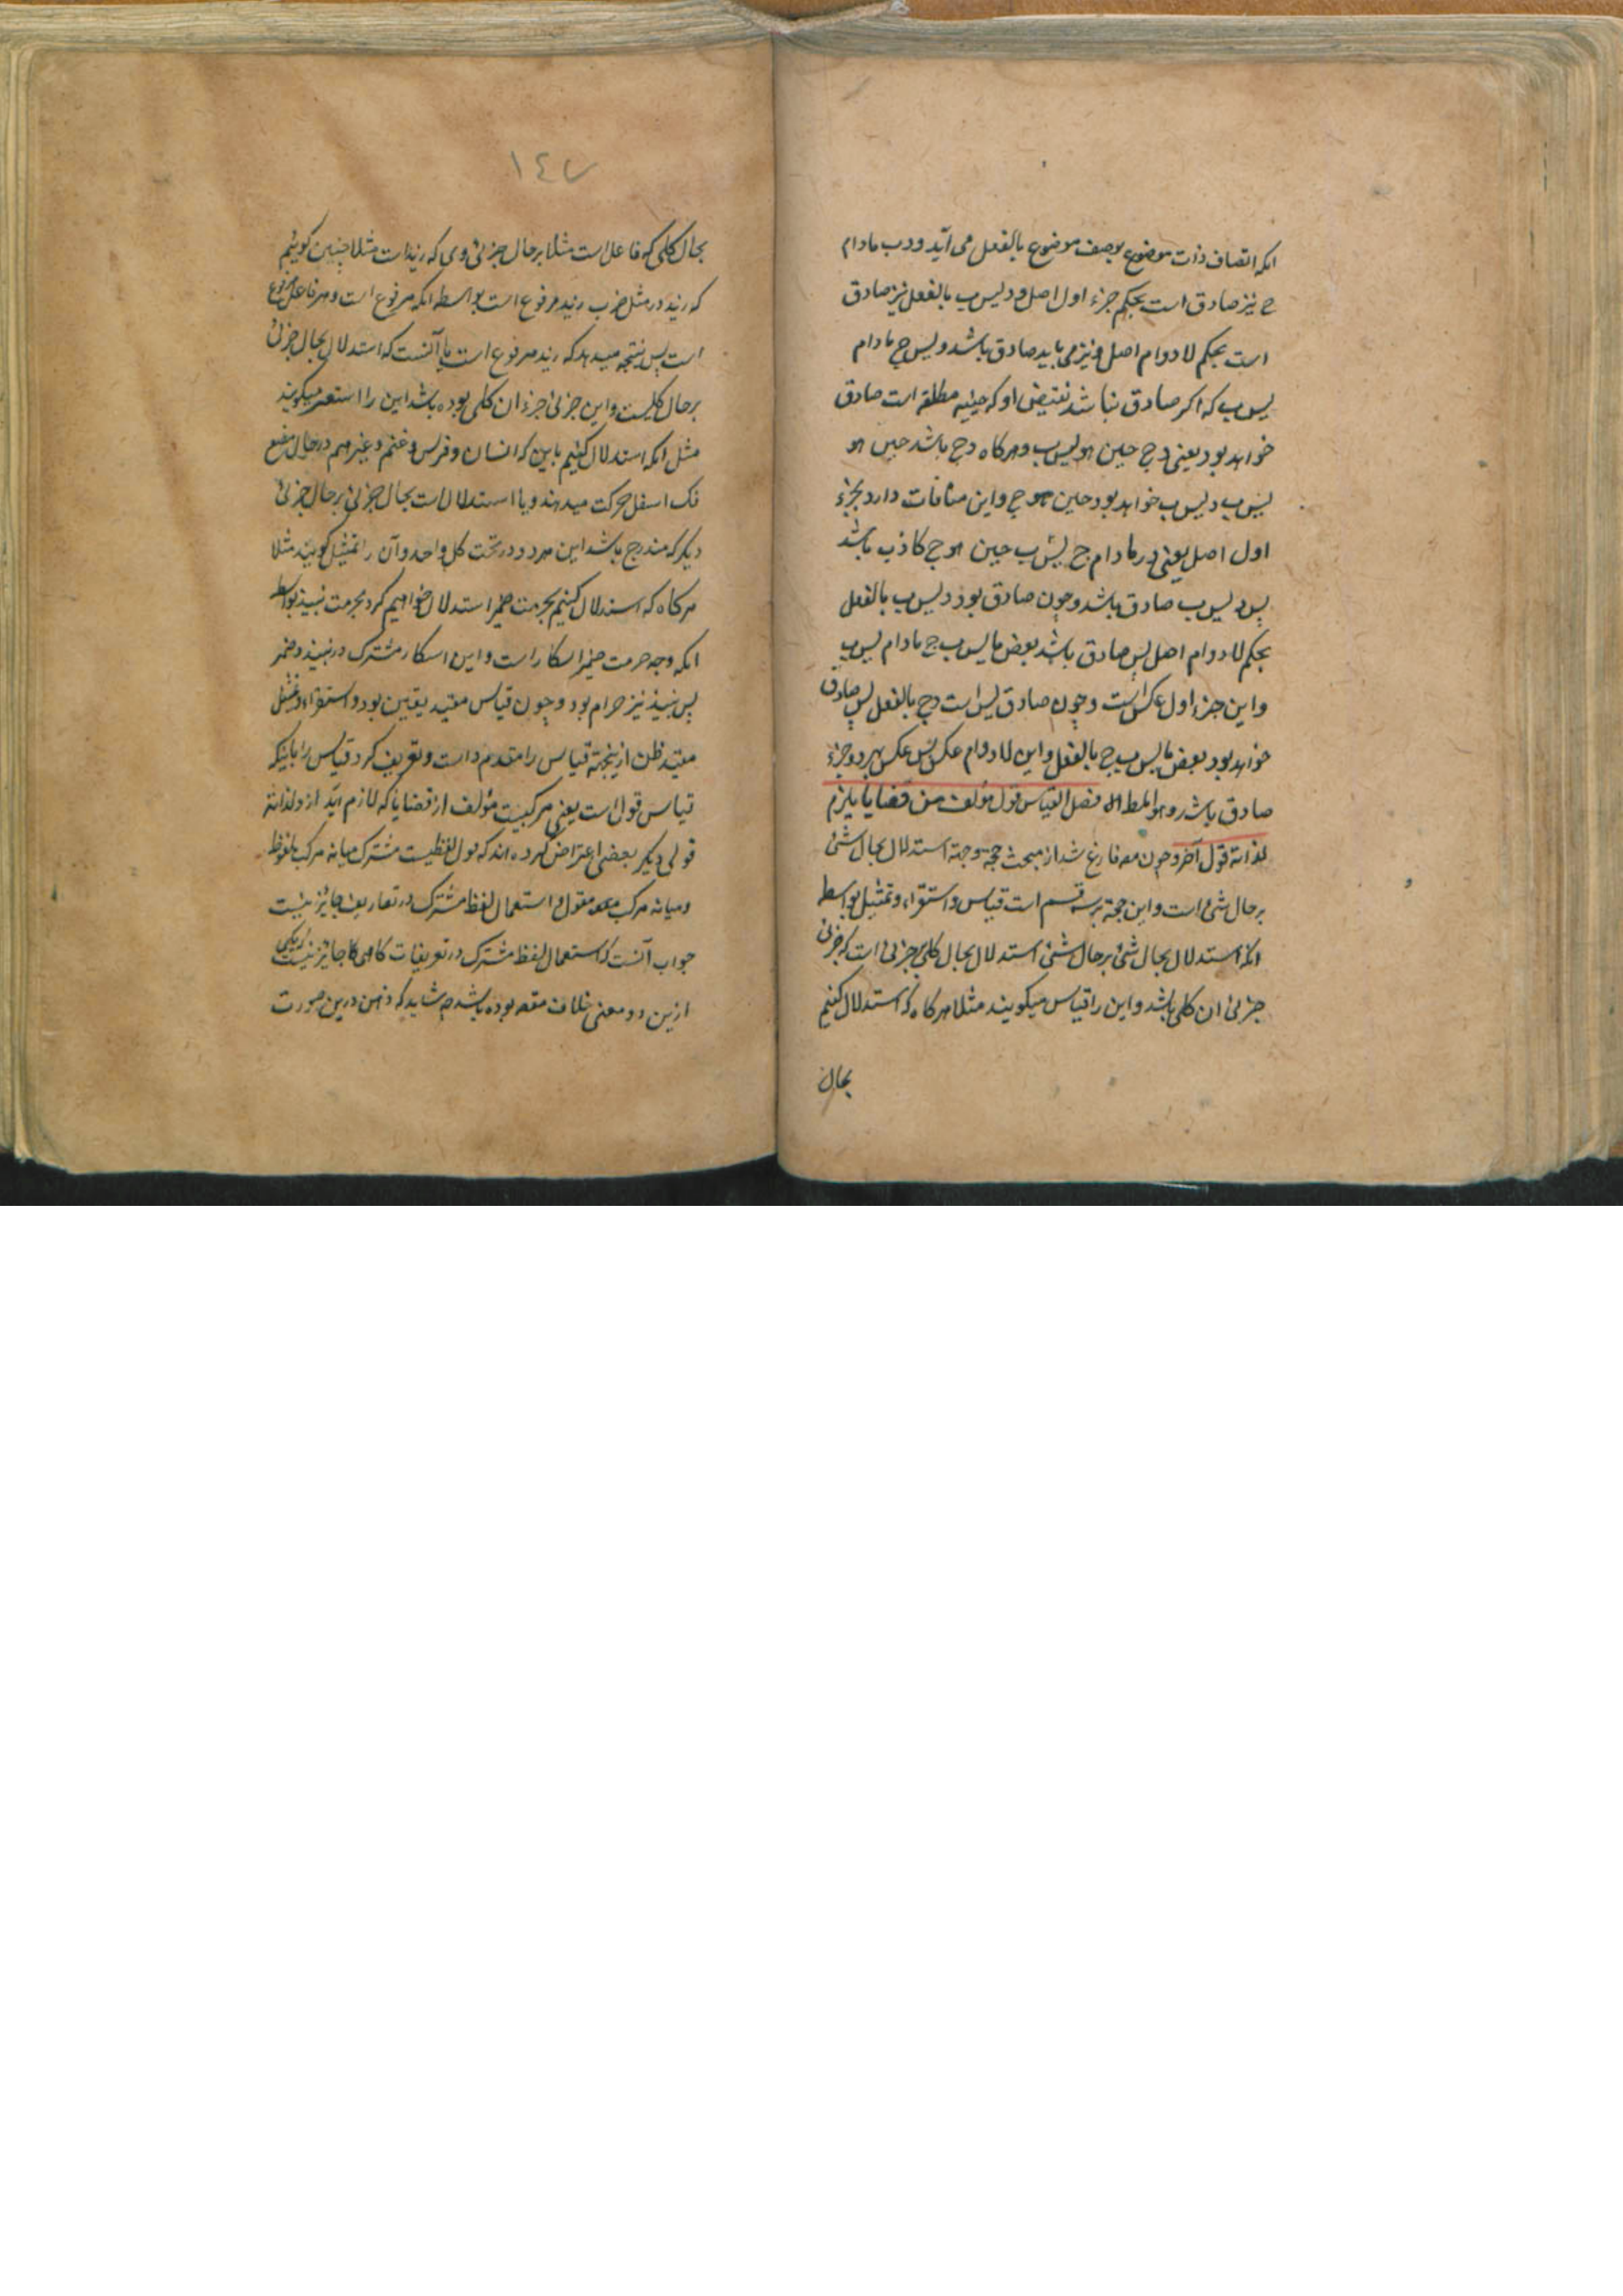 انکه اتصاف ذات موضوع بوصف موضوع بالفعل می آید و د ب مادام
ج نیز صادق است بحکم جزء اول اصل و د لیس ب بالفعل نیز صادق
است بحکم لا دوام اصل و نیز می باید صادق باشد د لیس ج مادام
لیس ب که اکر صادق نباشد نقیض او که حینیه مطلقه است صادق
خواهد بود یعنی د ج حین هو لیس ب و هرکاه د ج باشد حین هو
لیس ب د لیس ب خواهد بود حین هو ج و این منافات دارد بجزء
اول اصل یعنی د ب مادام ج پس د لیس ب حین هو ج کاذب باشد
پس د لیس ب صادق باشد و چون صادق بود د لیس ب بالفعل
بحکم لا دوام اصل پس صادق باشد بعض ما لیس ب ج مادام لیس ب
و این جزء اول عکس است و چون صادق است د ج بالفعل پس صادق
خواهد بود بعض ما لیس ب ج بالفعل و این لا دوام عکس پس عکس بهر دو جزء
صادق باشد و هو المط فصل القیاس قول مؤلف من قضایا یلزم
لذاته قول آخر و چون مصه فارغ شد از مبحث حجة و حجة استدلال بحال شئ
بر حال شئ است و این حجة بر سه قسم است قیاس و استقراء و تمثیل بواسطه
انکه استدلال بحال شئ بر حال شئ استدلال بحال کلی بر جزئی است که جزئی
جزئی ان کلی باشد و این را قیاس میکویند مثلا هرکاه که استدلال کنیم
بحال
١٤٧
بحال کلی که فاعل است مثلا بر حال جزئی وی که زید است مثلا چنین کوییم
که زید در مثل ضرب زید مرفوع است بواسطه انکه مرفوع است و هر فاعل مرفوع
است پس نتیجه میدهد که زید مرفوع است یا آنست که استدلال بحال جزئی
بر حال کلیست و این جزئی جزء ان کلی بوده باشد این را استقراء میکویند
مثل انکه استدلال کنیم باین که انسان و فرس و غنم و غیرهم در حال مضغ
فک اسفل حرکت میدهند و یا استدلال است بحال جزئی بر حال جزئی
دیکر که مندرج باشد این هر دو در تحت کل واحد و آن را تمثیل کویند مثلا
هرکاه که استدلال کنیم بحرمت خمر استدلال خواهیم کرد بحرمت نبیذ بواسطه
انکه وجه حرمت خمر اسکار است و این اسکار مشترک در نبیذ و خمر
پس نبیذ نیز حرام بود و چون قیاس مفید یقین بود و استقراء و تمثیل
مفید ظن ازینجهة قیاس را مقدم داشت و تعریف کرد قیاس را باینکه
قیاس قول است یعنی مرکبیست مؤلف از قضایا که لازم آید از و لذاته
قولی دیکر بعضی اعتراض کرده اند که قول لفظیست مشترک میانه مرکب ملفوظ
و میانه مرکب معقول و استعمال لفظ مشترک در تعاریف جایز نیست
جواب آنست که استعمال لفظ مشترک در تعریفات کاهی جایز نیست که یکی
ازین دو معنی خلاف مقصه بوده باشد چه شاید که ذهن درین صورت